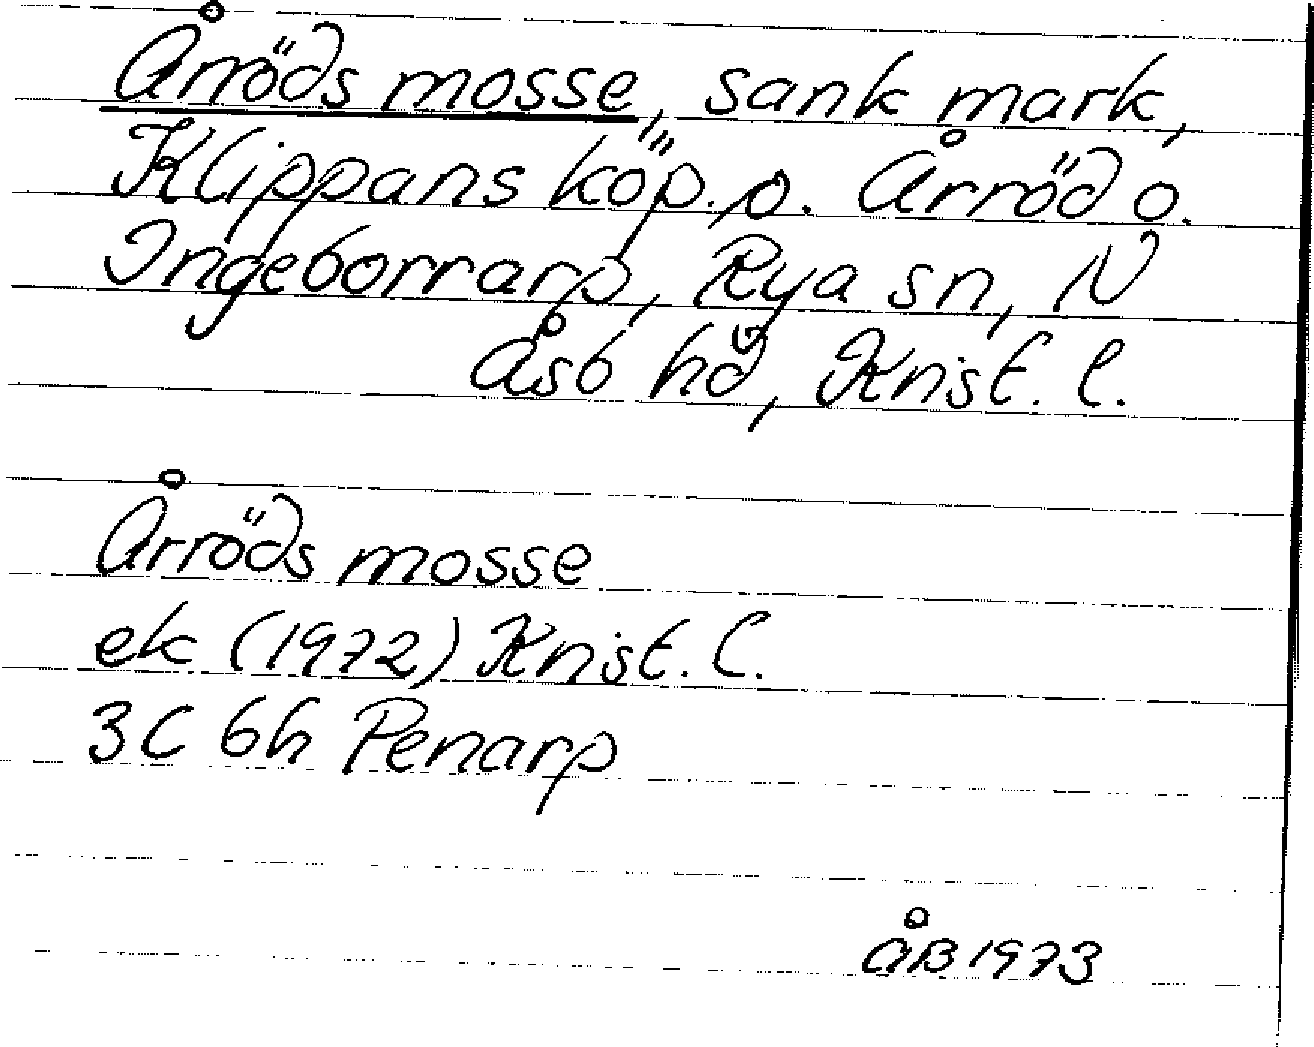 Årröds mosse, sank mark,
Klippans köp. o. Årröd o.
Ingeborrarp, Rya sn, N
Åsb hd, Krist. l.
Årröds mosse
ek (1972) Krist. l.
3C 6h Penarp
ÅB 1973